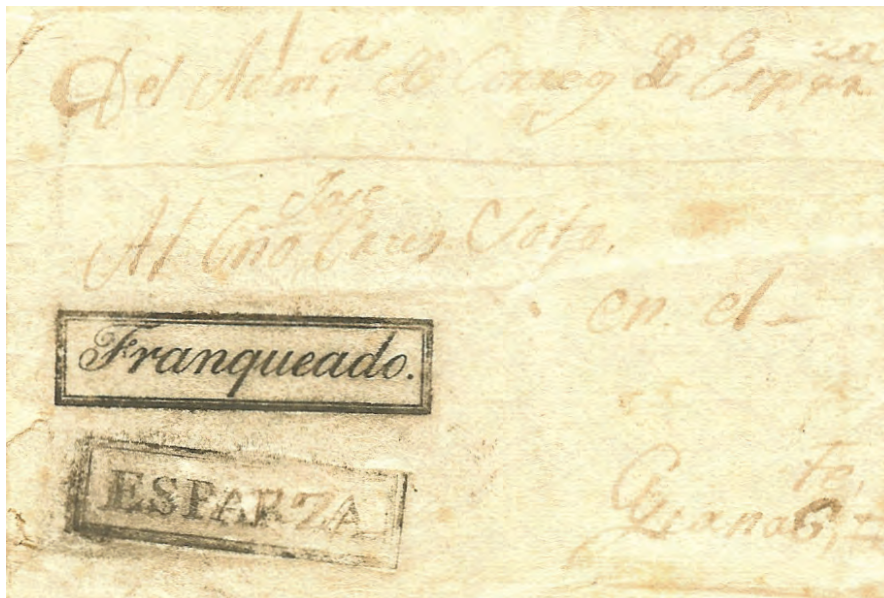 Del Adm.on de Correos de Esparza
Al Cño Jose Cruz Soto.
en el
Franqueado.
ESPARZA
Guanacte,